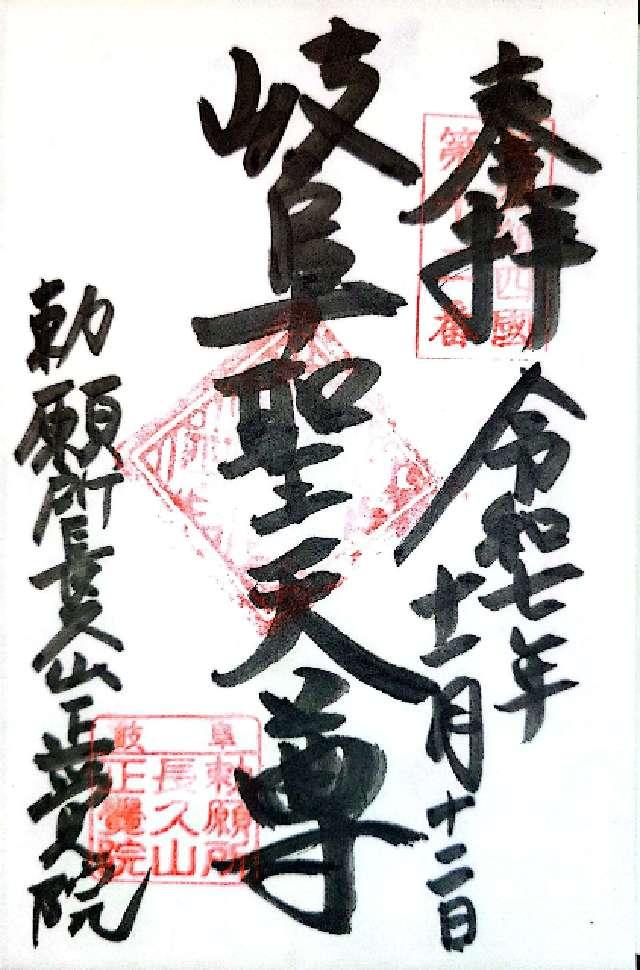 奉拝
令和七年
十一月十二日
岐阜聖天尊
勅願所長久山正覚院
四國
第十二番
岐阜
勅願所
長久山
正覺院